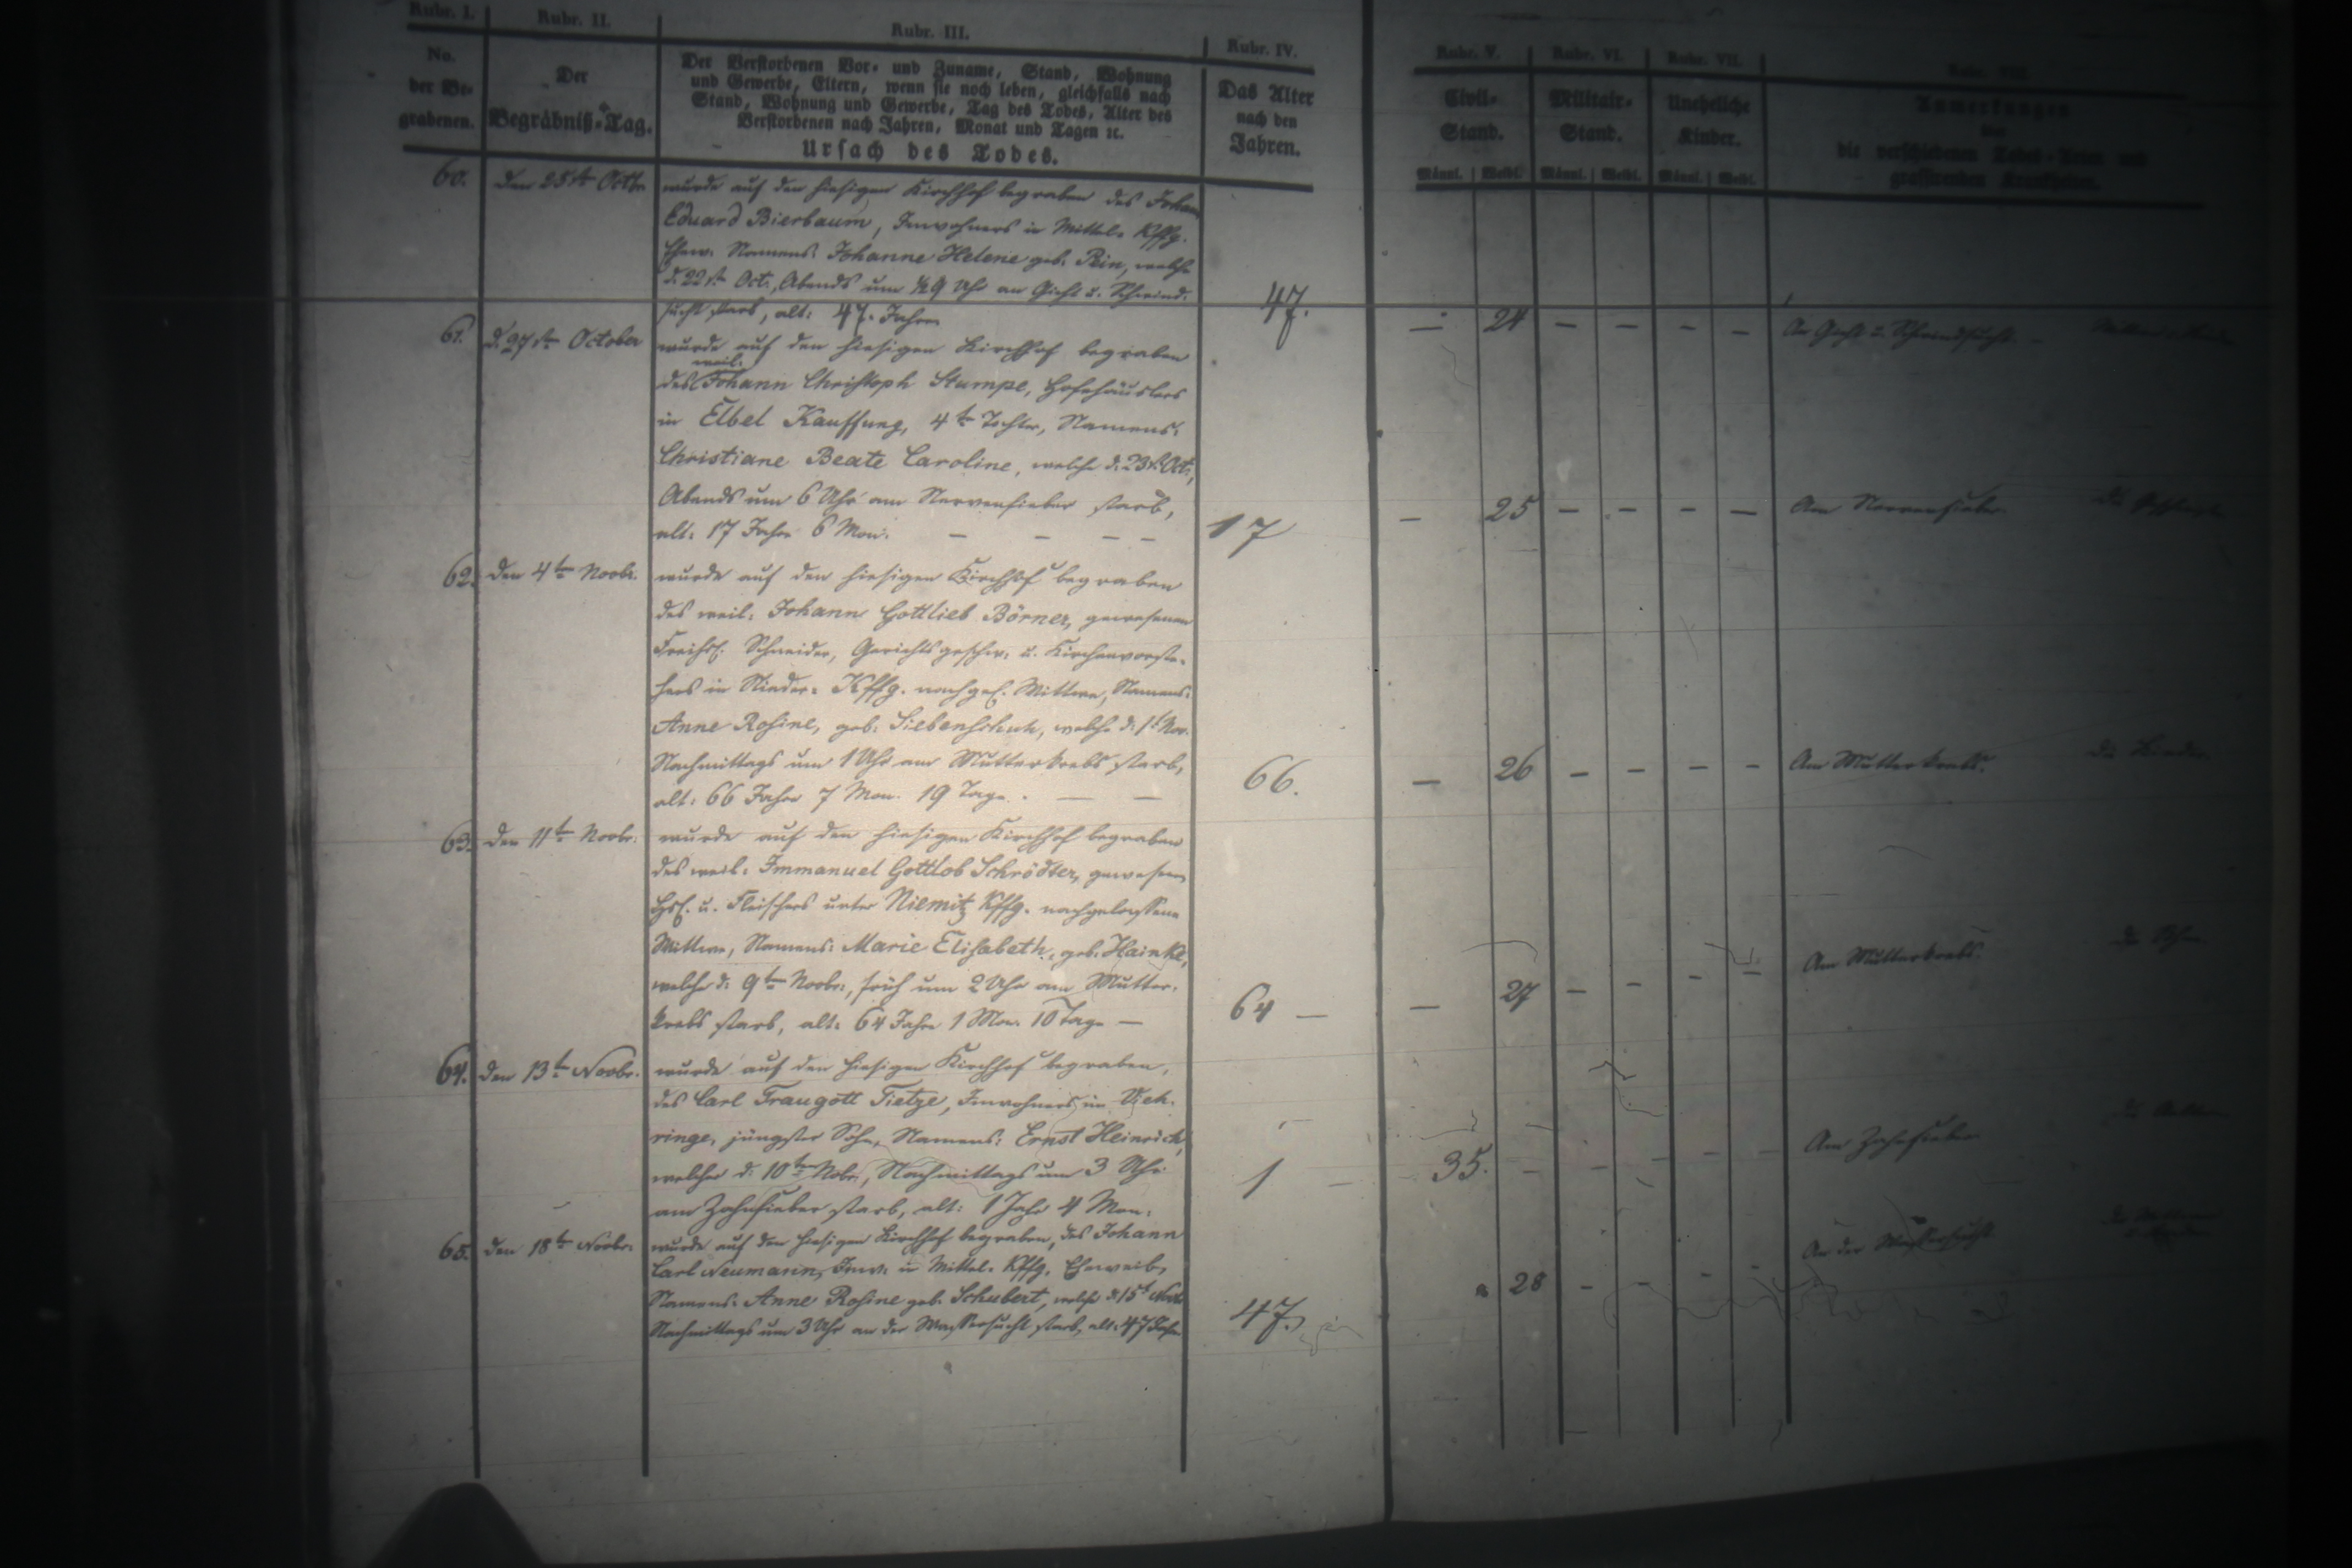 Rubr. I.
Rubr. II.
Rubr. III.
Rubr. IV.
Rubr. V.
Rubr. VI.
Rubr. VII.
Rubr. VIII.
No.
der Be-
grabenen.
Der
Begräbniß-Tag.
Der Verstorbenen Vor- und Zuname, Stand, Wohnung
und Gewerbe, Eltern, wenn sie noch leben, gleichfalls nach
Stand, Wohnung und Gewerbe, Tag des Todes, Alter des
Verstorbenen nach Jahren, Monat und Tagen ꝛc.
Ursach des Todes.
Das Alter
nach den
Jahren.
Civil-
Stand.
Männl. Weibl.
Militair-
Stand.
Männl. Weibl.
Uneheliche
Kinder.
Männl. Weibl.
Anmerkungen
über
die verschiedenen Todes-Arten und
grassirenden Krankheiten.
60. den 25ste Octbr.
wurde auf den hiesigen Kirchhof begraben des Johann
Eduard Bierbaum, Inwohners in Mittel- Kffg.
Ehew. Namens: Johanne Helene geb. Pein, welche
d. 22ste Oct., Abends um ½9 Uhr an Gicht u. Schwind-
sucht starb, alt: 47. Jahre
47. — 24 — — — — An Gicht u. Schwindsucht —
61. d. 27ste October
wurde auf den hiesigen Kirchhof begraben
weil.
des Johann Christoph Stumpe, Hofehäuslers
in Elbel Kauffung, 4te Tochter, Namens:
Christiane Beate Caroline, welche d. 23st. Oct.,
Abends um 6 Uhr am Nervenfieber starb,
alt: 17 Jahre 6 Mon. — — — —
17 — 25 — — — — Am Nervenfieber
62. den 4te Novbr.
wurde auf den hiesigen Kirchhof begraben
des weil. Johann Gottlieb Börner, gewesenen
Freihsl. Schneider, Gerichtsgeschw. u. Kirchenvorste-
hers in Nieder- Kffg. nachgel. Wittwe, Namens:
Anne Rosine, geb. Siebenschuh, welche d. 1st Nov.
Nachmittags um 1 Uhr am Mutterkrebs starb,
alt: 66 Jahre 7 Mon. 19 Tage. — —
66. — 26 — — — — Am Mutterkrebs. die Kinder
63. den 11te Novbr.
wurde auf den hiesigen Kirchhof begraben
des weil. Immanuel Gottlob Schrödter, gewesen
Hsl. u. Fleischers unter Niemitz Kffg. nachgelassene
Wittwe, Namens: Marie Elisabeth, geb. Hainke,
welche d. 9te Novbr., früh um 2 Uhr am Mutter-
krebs starb, alt: 64 Jahre 1 Mon. 10 Tage —
64 — — 27 — — — — Am Mutterkrebs.
64. den 13te Novbr.
wurde auf den hiesigen Kirchhof begraben,
des Carl Traugott Tietze, Inwohners im Vieh-
ringe, jüngster Sohn, Namens: Ernst Heinrich,
welcher d. 10te Nobr., Nachmittags um 3 Uhr
am Zahnfieber starb, alt: 1 Jahr 4 Mon.
1 — 35. — — — — — Am Zahnfieber
65. den 18te Novbr.
wurde auf den hiesigen Kirchhof begraben, des Johann
Carl Neumann, Inw. in Mittel- Kffg. Eheweib,
Namens: Anne Rosine geb. Schubert, welche d. 15t Novbr
Nachmittags um 3 Uhr an der Wassersucht starb, alt: 47 Jahre
47. 28 — — — — An der Wassersucht